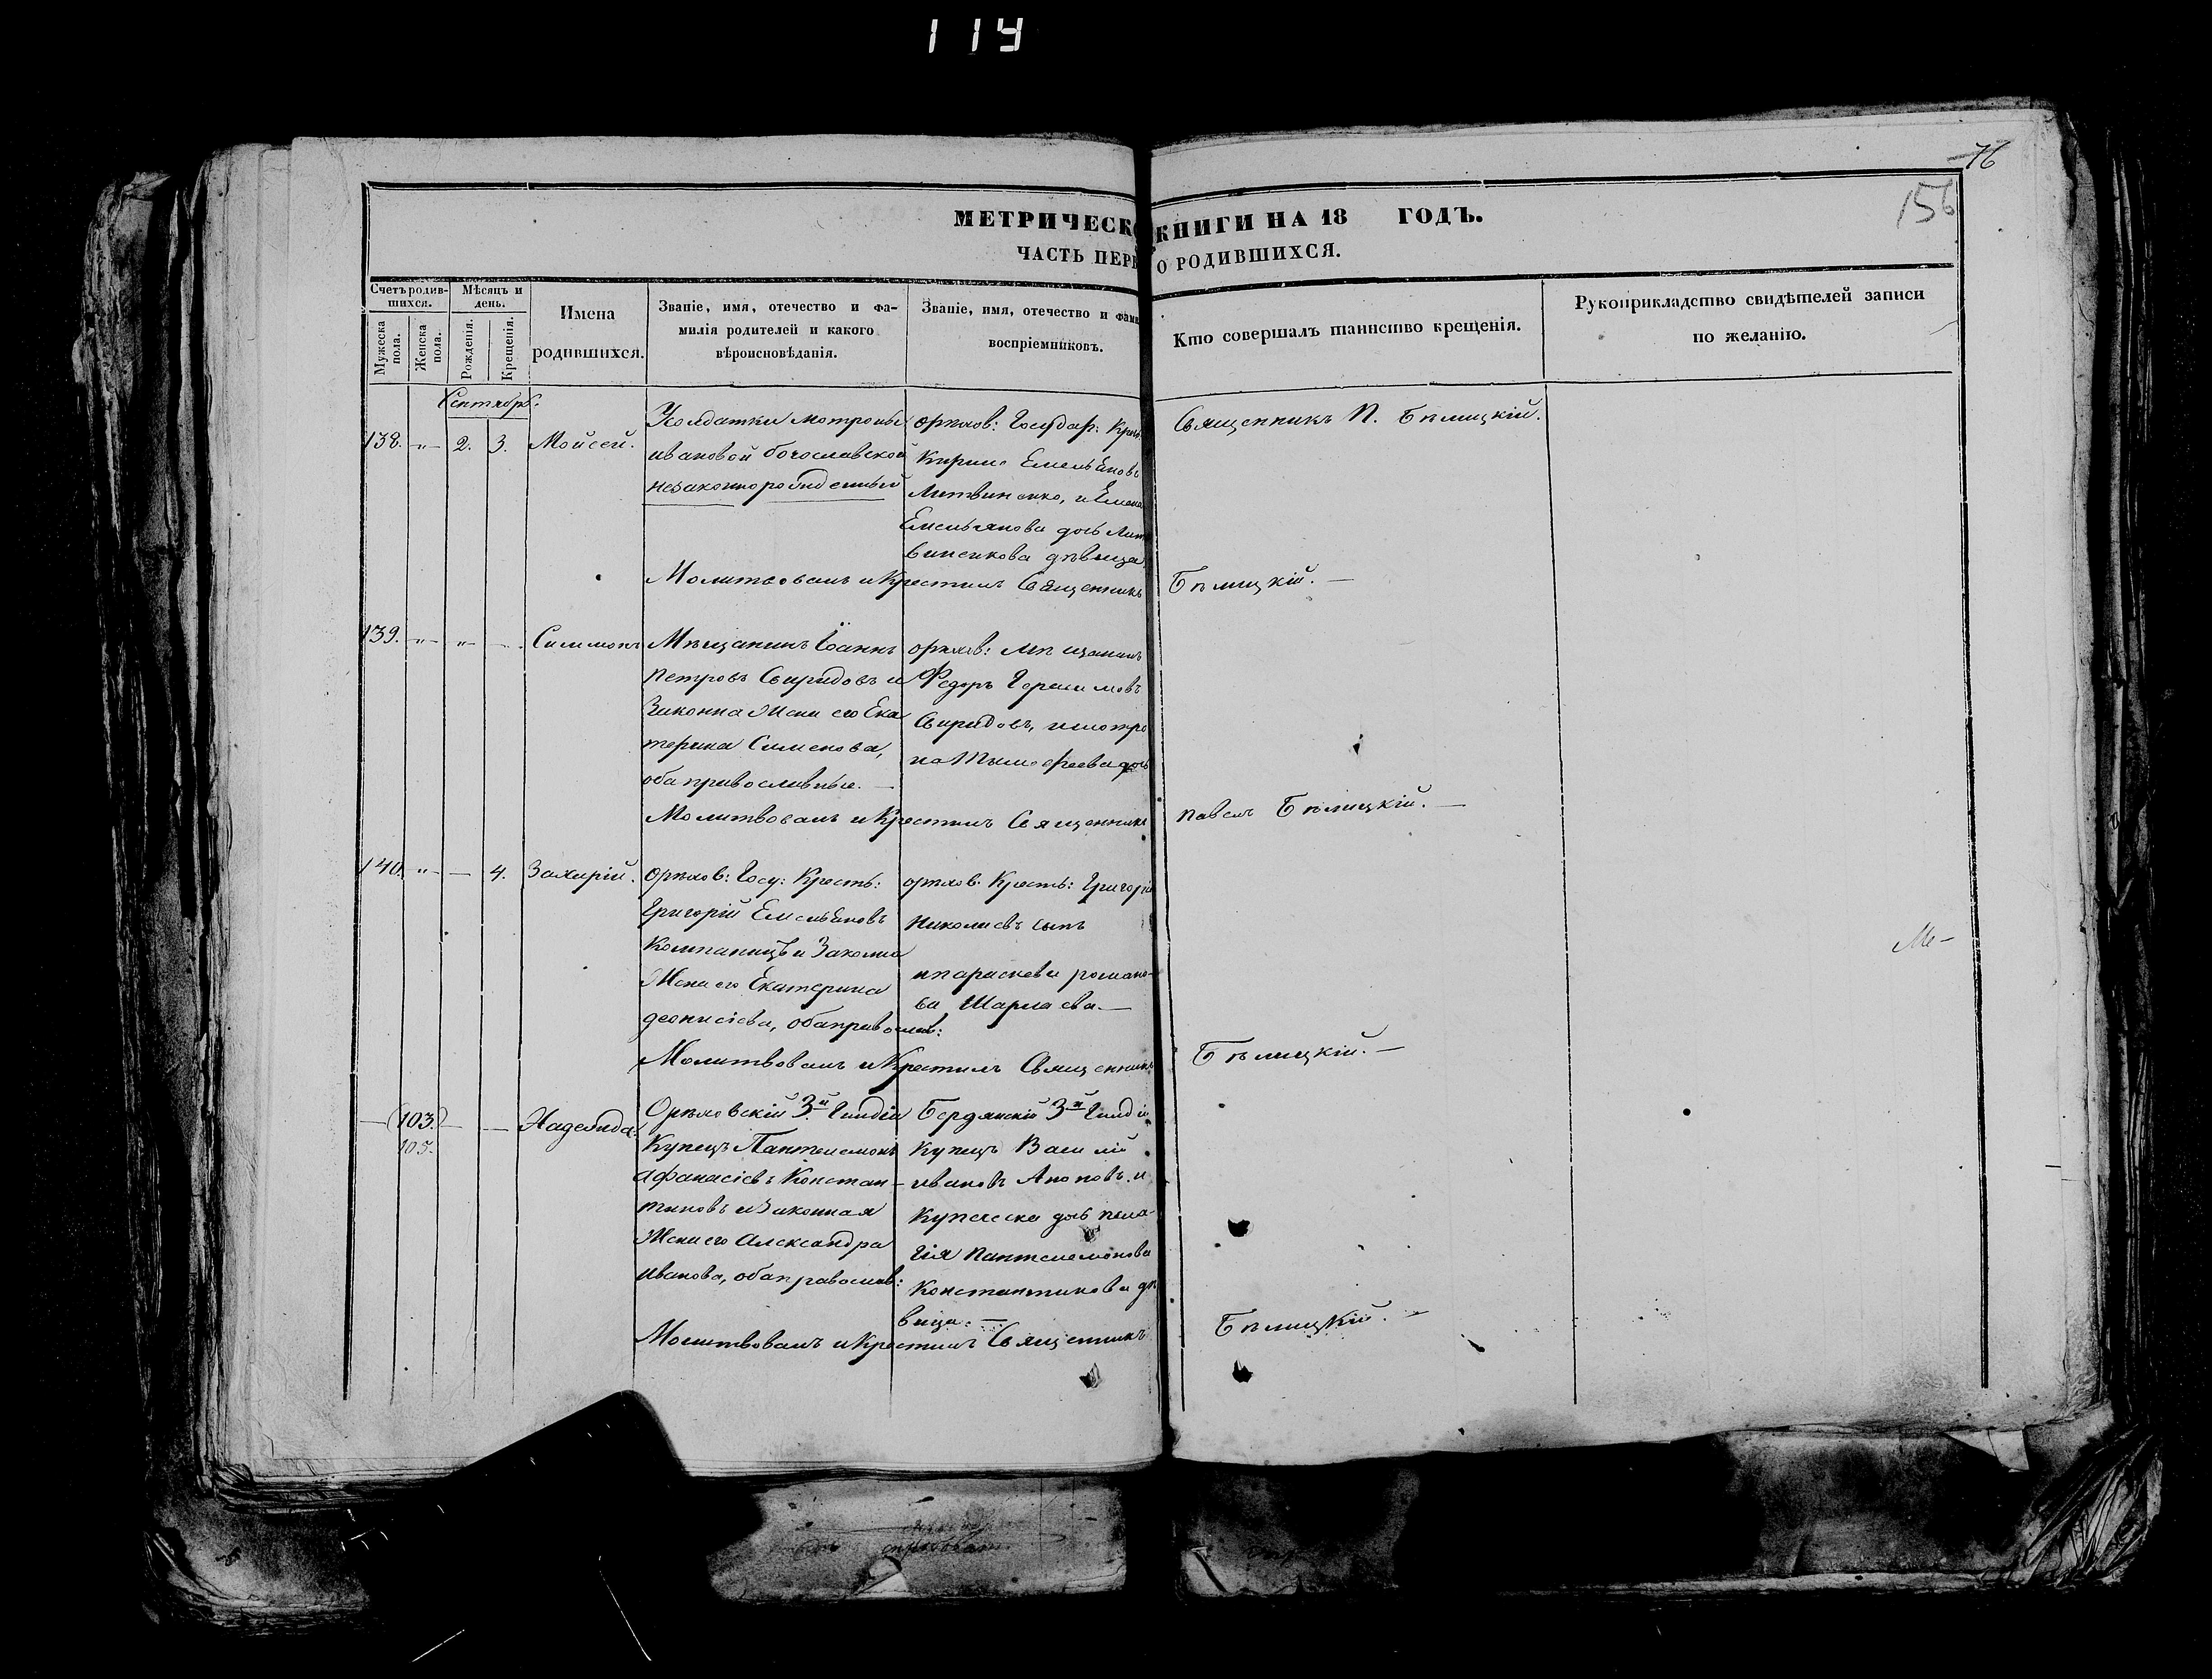 114
76
156
МЕТРИЧЕСКО КНИГИ НА 18 ГОДЪ.
ЧАСТЬ ПЕРВ О РОДИВШИХСЯ.
Счетъ родив-
шихся.
Мужеска пола.
Женска пола.
Мѣсяцъ и
день.
Рожденія.
Крещенія.
Имена
родившихся.
Званіе, имя, отечество и фа-
милія родителей и какого
вѣроисновѣданія.
Званіе, имя, отечество и фами
воспріемниковъ.
Кто совершалъ таинство крещенія.
Рукоприкладство свидѣтелей записи
по желанію.
Сентябрь.
138. „ 2. 3. Мойсей.
Солдатки мотроны
ивановой богославской
незаконнорожденный
орѣхов: Государ: Крес
Кирило Емельяновъ
Литвиненко, и Елена
Емельянова дочь Лит
виненкова дѣвица
Священникъ П. Бѣлицкій.
Молитвовалъ и Крестилъ Священникъ Бѣлицкій. —
139. „ „ — Симионъ
Мѣщанинъ Іоаннъ
Петровъ Свиридовъ и
Законна Жена его Ека
терина Сименова,
оба православные. —
орѣхов: мѣщанинъ
Федоръ Герасимовъ
Свиридовъ, и мотро
на Тимофеева дочь
Молитвовалъ и Крестилъ Священникъ Павелъ Бѣлицкій. —
140. „ — 4. Захарій.
Орѣхов: Госу: Кресть:
Григорій Емельяновъ
Компаниецъ и Законна
Жена его Екатерина
деонисіева, оба православ:
орѣхов: Кресть: Григорій
Николаевъ сынъ
и параскева романо-
ва Шармаева. —
Ме-
Молитвовалъ и Крестилъ Священникъ Бѣлицкій. —
— (103) — — Надежда.
105.
Орѣховскій 3й Гильдіи
Купецъ Пантелемонъ
Афанасіевъ Констан-
тиновъ и Законная
Жена его Александра
Иванова, оба православ:
Бердянскій 3й Гильдіи
Купецъ Василій
ивановъ Аноповъ и
Купеческа дочь пела-
гія Пантелемонова
Константинова дѣ
вица. —
Молитвовалъ и крестилъ Священникъ Бѣлицкій. —